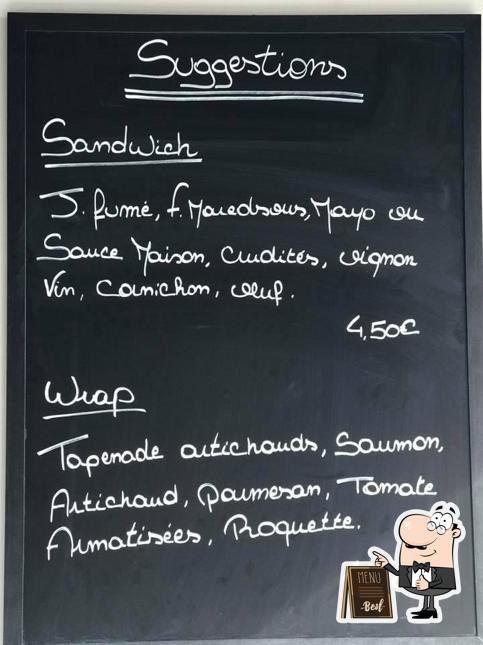 Suggestions
Sandwich
J. fumé, f. Maredsous, Mayo ou
Sauce Maison, Crudités, oignon
Vin, Cornichon, œuf.
4,50€
Wrap
Tapenade artichauds, Saumon,
Artichaud, Parmesan, Tomate
Aromatisées, Roquette.
MENU
Best